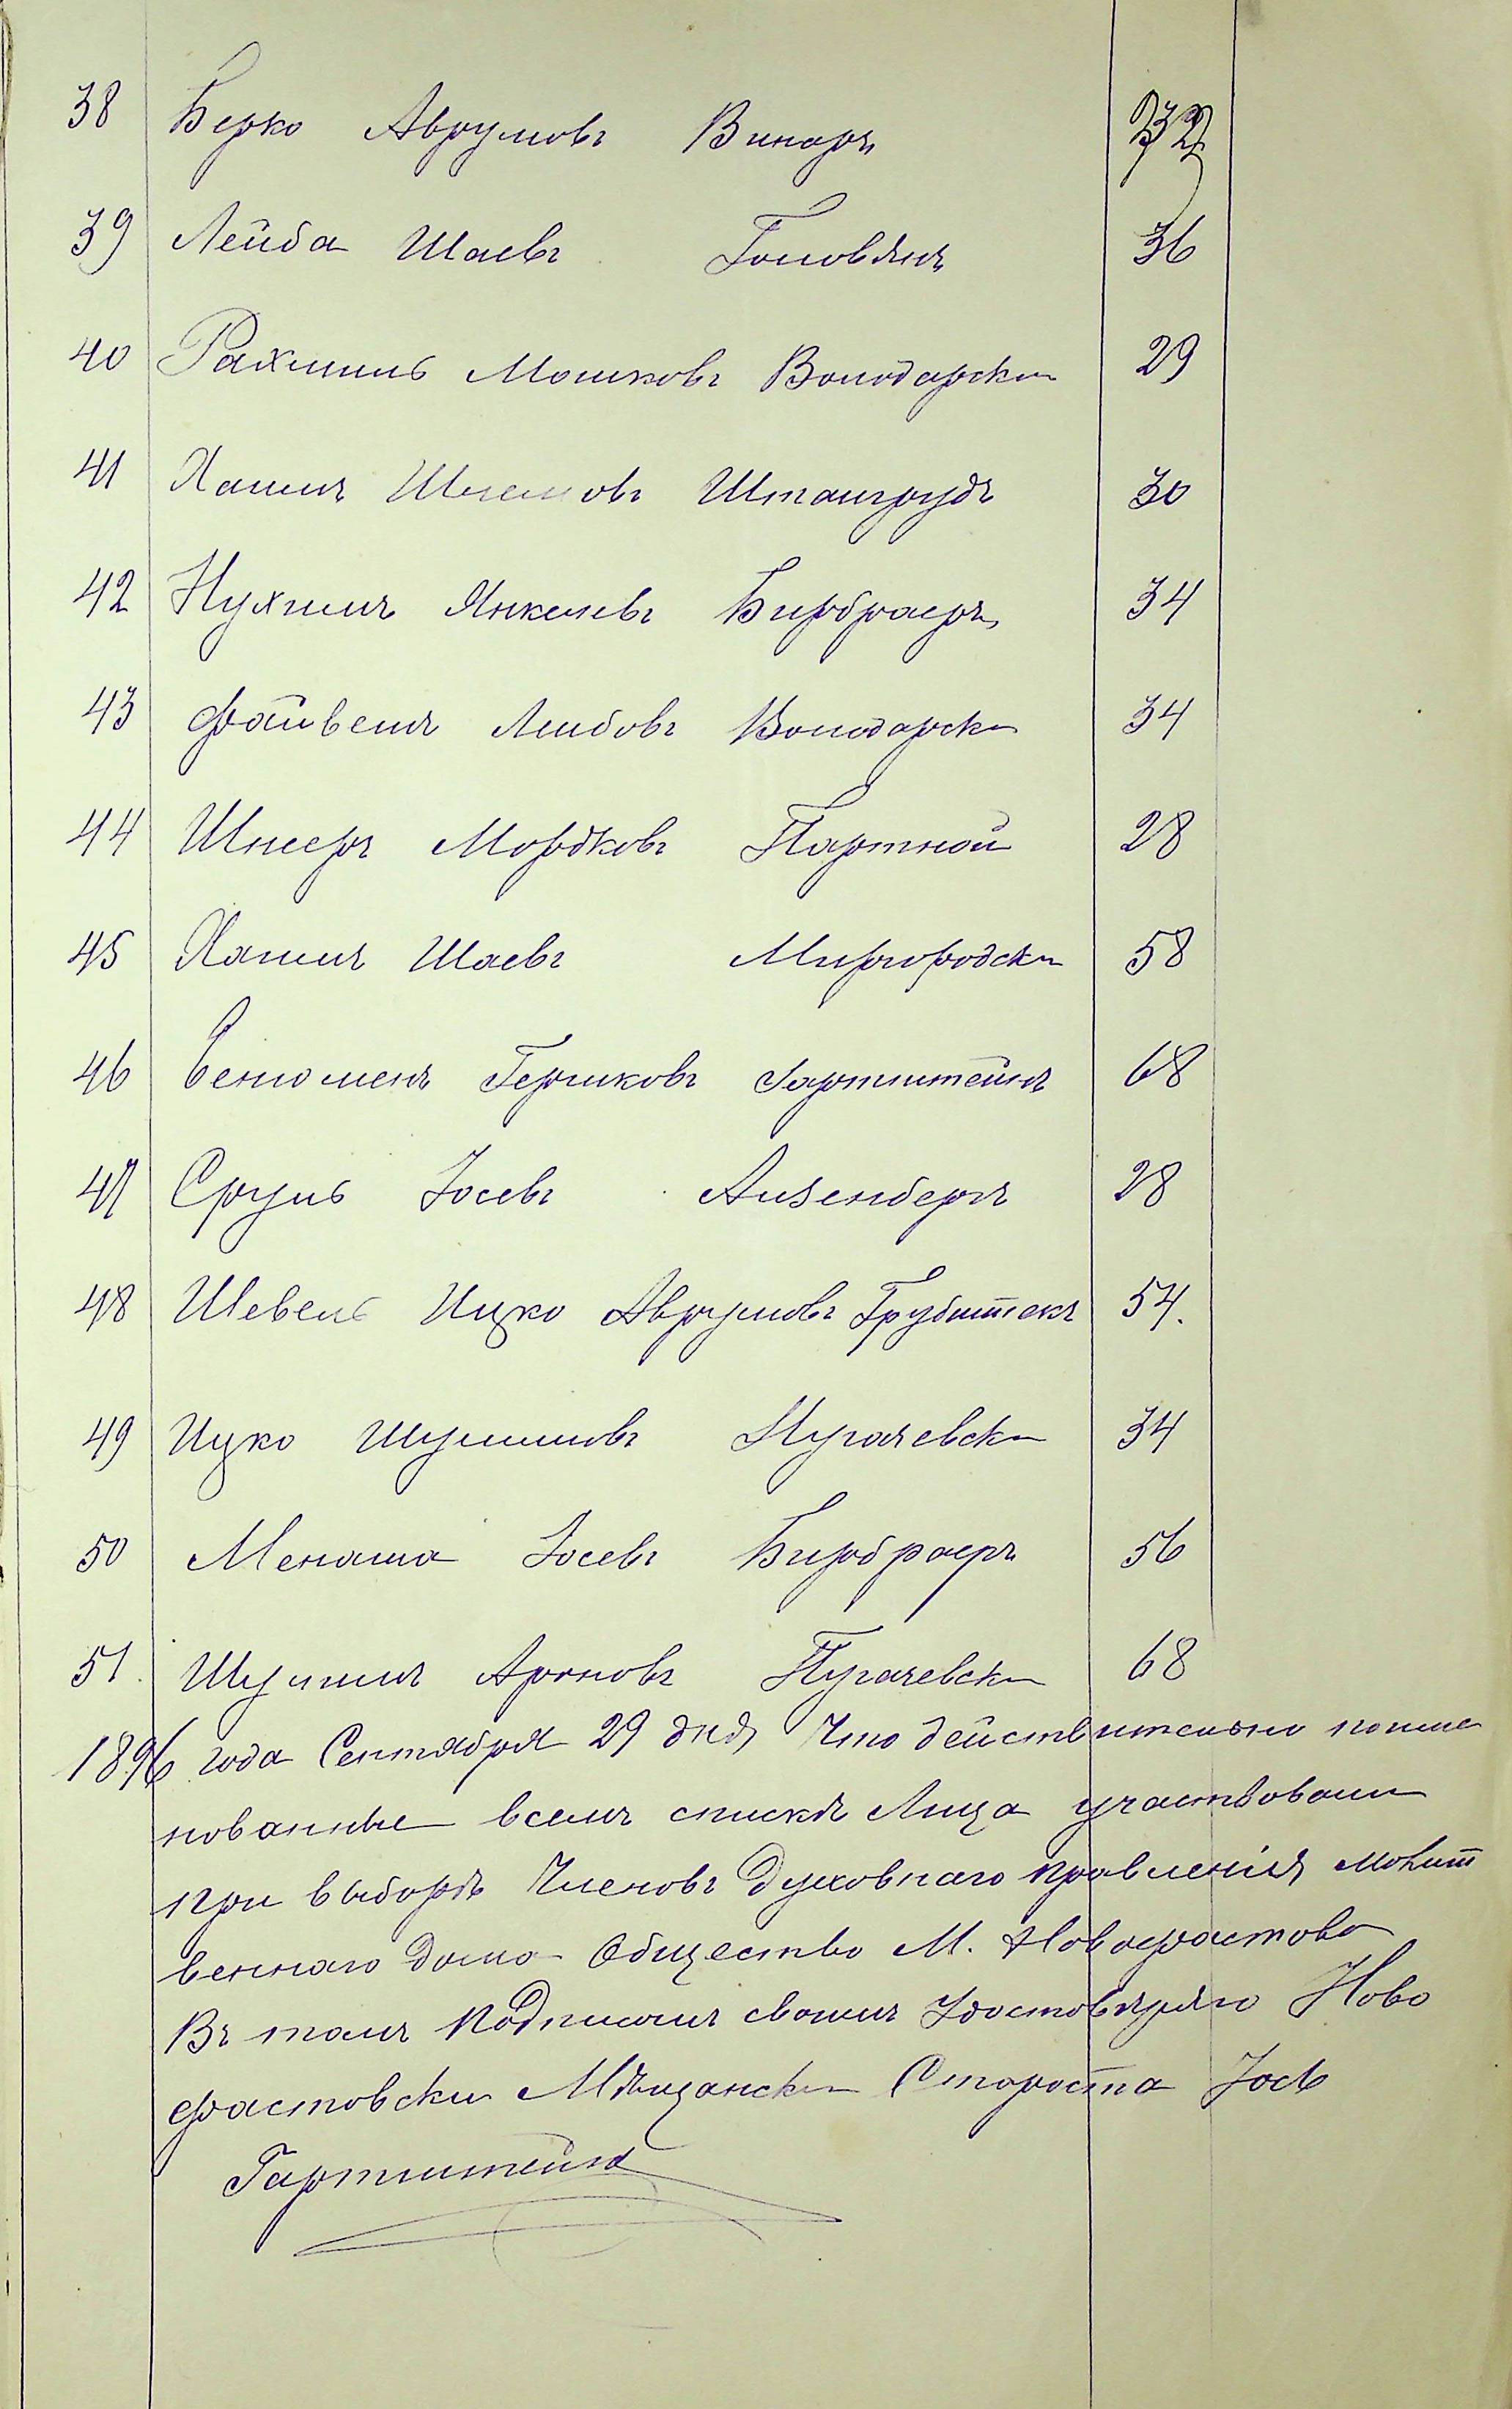 38 Берко Аврумовъ Винаръ 32
39 Лейба Шаевъ Головянъ 36
40 Рахмиль Мошковъ Володарски 29
41 Хаимъ Шлемовъ Штангрудъ 30
42 Нухимъ Янкелевъ Бирбраеръ 34
43 Файвелъ Лейбовъ Володарски 34
44 Шнееръ Мордковъ Партной 28
45 Хаимъ Шаевъ Миргородски 58
46 Гершковъ Гартштейнъ 68
47 Сруль Іосевъ Аизенбергъ 28
48 Шевель Ицко Аврумовъ 54.
49 Ицко Шулимовъ Пугачевски 34
50 Менаша Іосевъ Бирбраеръ 56
51. Шулимъ Ароновъ Пугачевски 68
1896 года Сентября 29 дня Что действительно поиме
нованные всемъ спискѣ Лица участвовали
при выборѣ Членовъ Духовнаго правленія Молит
веннаго Дома Общество М. Новофастова
Въ томъ Подписомъ своимъ Удостовѣряю Ново
фастовски Мѣщански Староста Іось
Гартштейнъ